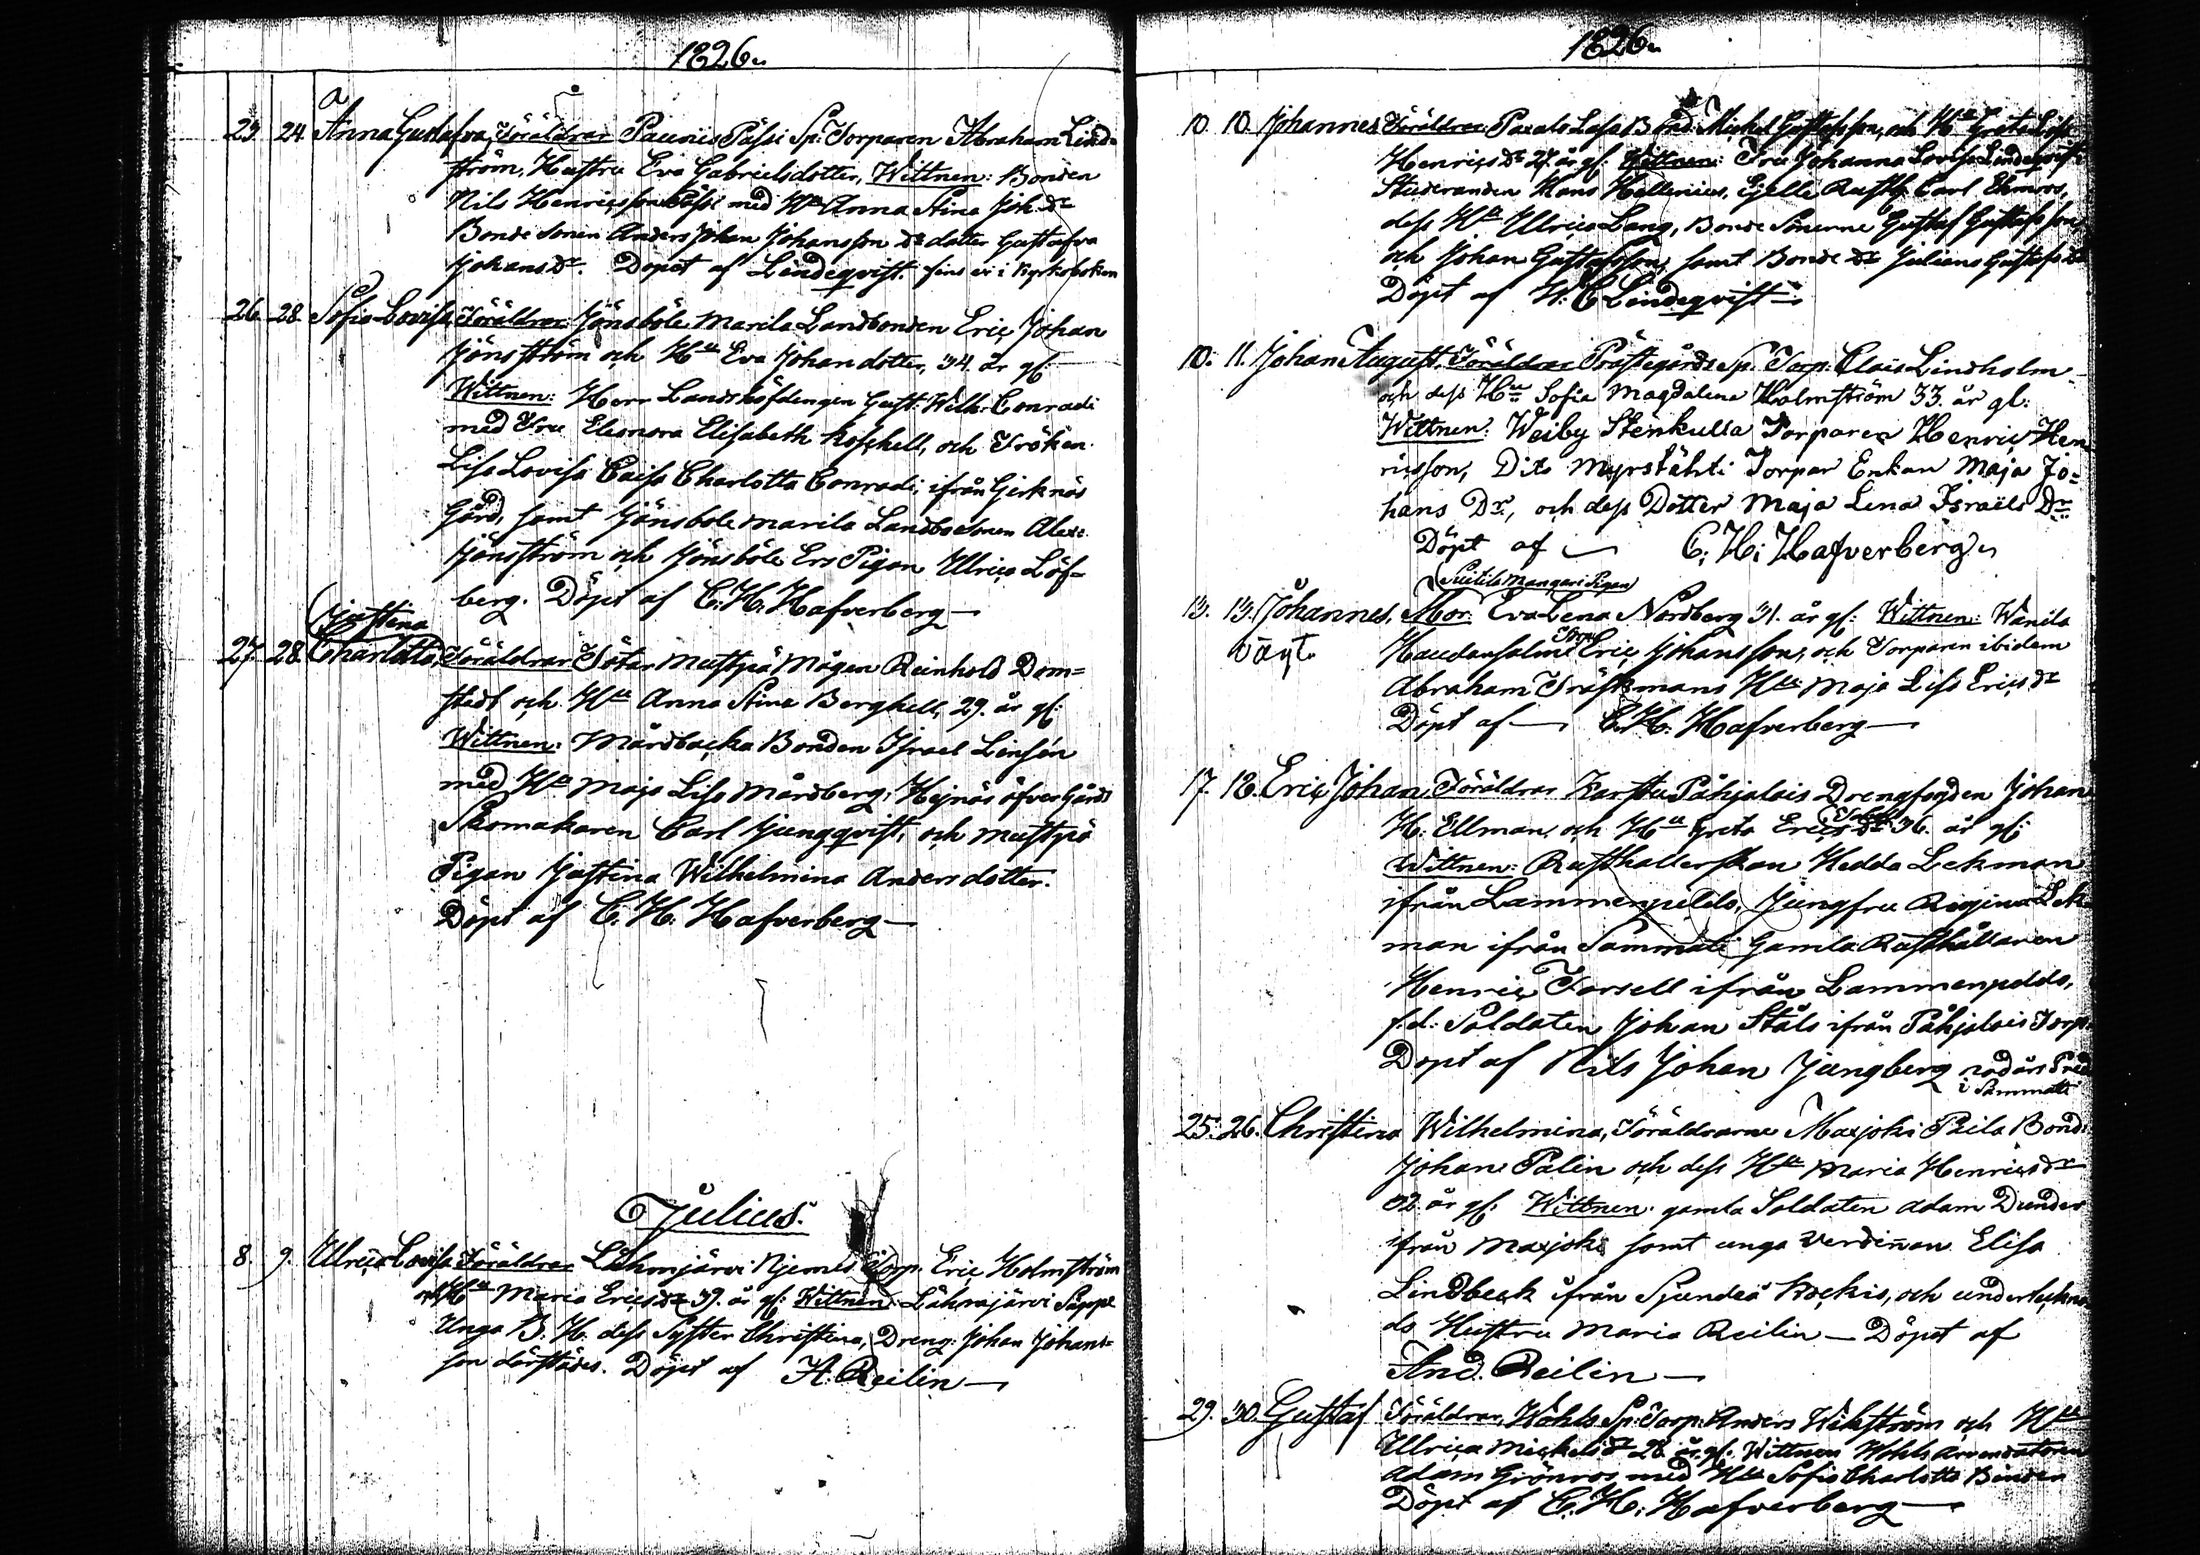 1826.
a
23. 24. Anna Gustafva, Föräldrar Paunis Påssi Sp. Torparen Abraham Lind=
ström, Hustru Eva Gabrielsdotter, Wittnen: Bonden
Nils Henricsson Påssi med Hu Anna Stina Joh.dr
Bonde sonen Anders Johan Johansson dr dotter Gustafva
Johansdr. Döpt af Lindeqvist. fins ei i Kyrkoboken
26. 28. Sofia Lovisa, Föräldrar: Jönsböle Marila Landbonden Eric Johan
Jönsström och Hu Eva Johan dotter, 34. år gl:
Wittnen: Herr Landshöfdingen Gust: Wilh: Conradi
med Fru Eleonora Elisabeth Roschell, och Fröken
Lisa Lovisa Caisa Charlotta Conradi, ifrån Gerknäs
Gård, samt Jönsbole Marila Landbosonen Alex:
Jönsström och Jönsböle Ers Pigan Ulrica Löf=
berg. Döpt af C. H. Hafverberg
(Justina
27. 28. Charlotta, Föräldrar Tötar Mustpä Mågen Reinhold Dom=
stedt och Hu Anna Stina Berghell, 29. år gl:
Wittnen: Mårdbacka Bonden Israel Linsén
med Hu Maja Lisa Mårdberg, Hejnäs öfver Gårds
Skomakaren Carl Ljungqvist, och Mustpä
Pigan Justina Wilhelmina Andersdotter.
Döpt af C. H. Hafverberg
Julius.
8. 9. Ulrica Lovisa Föräldrar Lohmjärvi Njemis Torp. Eric Holmström
och Hu Maria Ericsdr 39. år gl: Wittnen: Lohmjärvi Seppä
Unga B. H. dess Syster Christina, Dreng: Johan Johans=
son därstädes. Döpt af A. Reilin
1826.
10. 10. Johannes Föräldrar Paxalo Lassas Bond: Michel Gustafsson, och Hu Greta Lisa
Henricsdr 27. år gl: Wittnen: Fru Johanna Lovisa Lindeqvist
Studeranden Hans Hellenius, Gjelle Rusth. Carl Ekmros,
dess Hu Ulrica Lang, Bonde Sönerne Gustaf Gustafsson,
och Johan Gustafsson, samt Bonde dr Juliana Gustafsdr
Döpt af H: C Lindeqvist
10. 11. Johan August, Föräldrar Prästegårds Sp. Torp. Clais Lindholm
och dess Hu Sofia Magdalena Holmström 33. år gl.
Wittnen: Weiby Stenkulla Torparen Henric Hen
ricsson, Dito Myrstähti Torpar Enkan Maja Jo=
hans Dr, och dess Dotter Maja Lena Israels Dr
Döpt af C. H: Hafverberg
(Suitila Mangari Pigan
13. 13. Johannes, Mor: Eva Lena Nordberg 31. år gl: Wittnen: Wanila
oägt. Haudansalmi Eric Johansson, och Torparen ibidem
Abraham Träskmans Hu Maja Lisa Ericsdr
Döpt af C. H. Hafverberg
17. 18. Eric Johan, Föräldrar Karstu Påhjalais Drengfogden Johan
H: Ellman, och Hu Greta Ericsdr 36. år gl:
Wittnen: Rusthållerskan Hedda Lekman
ifrån Lammenpeldo, Jungfru Regina Lek
man ifrån Sammati Gamla Rusthållaren
Henric Forsell ifrån Lammenpeldo,
f.d: Soldaten Johan Ståls ifrån Påhjalais Torp.
Döpt af Nils Johan Ljungberg nådårs Pred
i Sammatti
25. 26. Christina Wilhelmina, Föräldrarne Maxjoki Peila Bond:
Johan Palin och dess Hu Maria Henricsdr
32. år gl: Wittnen: gamla Soldaten Adam Dunder
ifrån Maxjoki samt unga Verdinnan Elisa
Lindbeck ifrån Sjundeå Kockis, och underteckna
ds Hustru Maria Reilin — Döpt af
And. Reilin
29. 30. Gustaf Föräldrar, Wohls Sp. Torp: Anders Wikström och Hu
Ulrica Michelsdr 28. år gl: Wittnen Wohls Arrendatoren
Adam Grönroos, med Hu Sofia Charlotta Binden
Döpt af C. H: Hafverberg